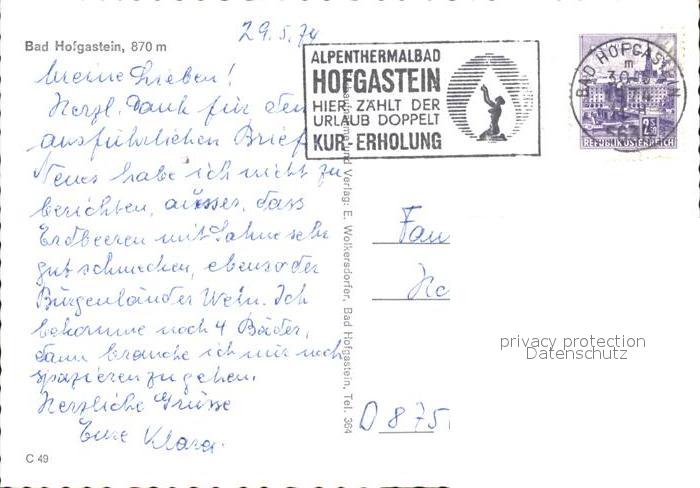 29.5.74
Bad Hofgastein, 870 m
Meine Lieben!
Herzl. Dank für den
ausführlichen Brief
Neues habe ich nicht zu
berichten, ausser, dass
Erdbeeren mit Sahne sehr
gut schmecken, ebenso der
Burgenländer Wein. Ich
bekomme noch 4 Bäder,
dann brauche ich nur noch
spazieren zu gehen.
Herzliche Grüsse
Eure Klara.
C 49
ALPENTHERMALBAD
HOFGASTEIN
HIER ZÄHLT DER
URLAUB DOPPELT
KUR- ERHOLUNG
BAD HOFGASTEIN
m
30.
74
REPUBLIK ÖSTERREICH
und Verlag: E. Wolkersdorfer, Bad Hofgastein, Tel. 364
Fam
D 875
privacy protection
Datenschutz